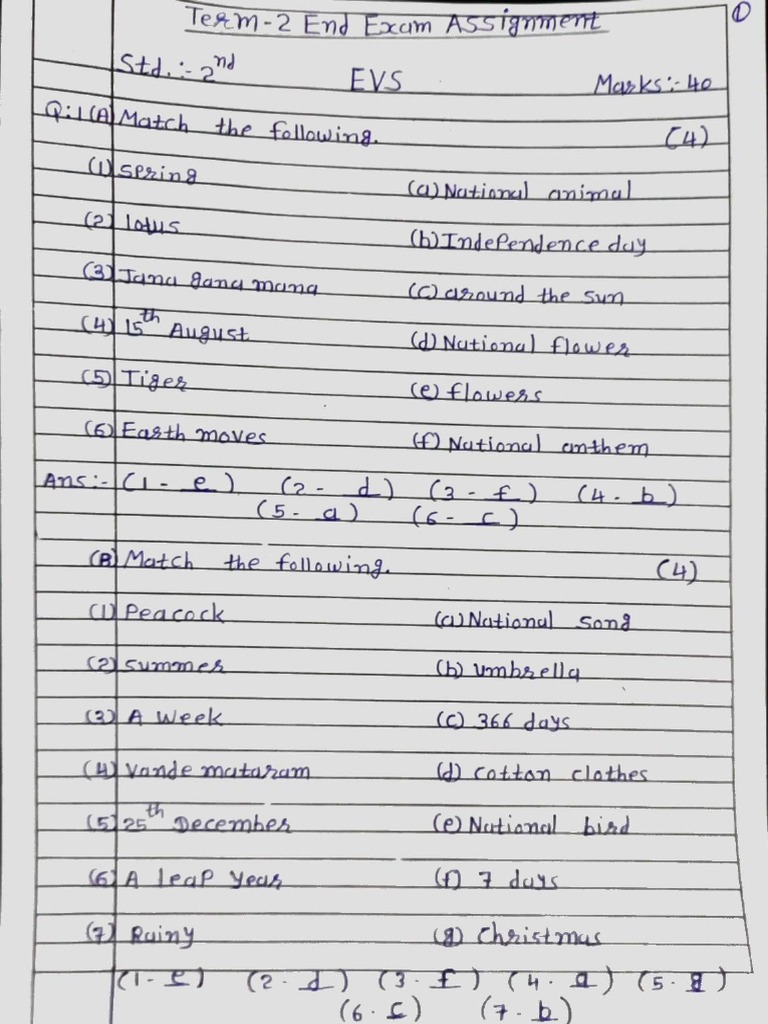 ①
Term-2 End Exam Assignment
Std.:- 2nd EVS Marks:- 40
Q:1(A) Match the following. (4)
(1) spring (a) National animal
(2) lotus (b) Independence day
(3) Jana gana mana (c) around the sun
(4) 15th August (d) National flower
(5) Tiger (e) flowers
(6) Earth moves (f) National anthem
Ans:- (1 - e) (2 - d) (3 - f) (4 - b)
(5 - a) (6 - c)
(B) Match the following. (4)
(1) Peacock (a) National song
(2) summer (b) umbrella
(3) A week (c) 366 days
(4) Vande mataram (d) cotton clothes
(5) 25th December (e) National bird
(6) A leap year (f) 7 days
(7) Rainy (g) Christmas
(1 - e) (2 - d) (3 - f) (4 - a) (5 - g)
(6 - c) (7 - b)